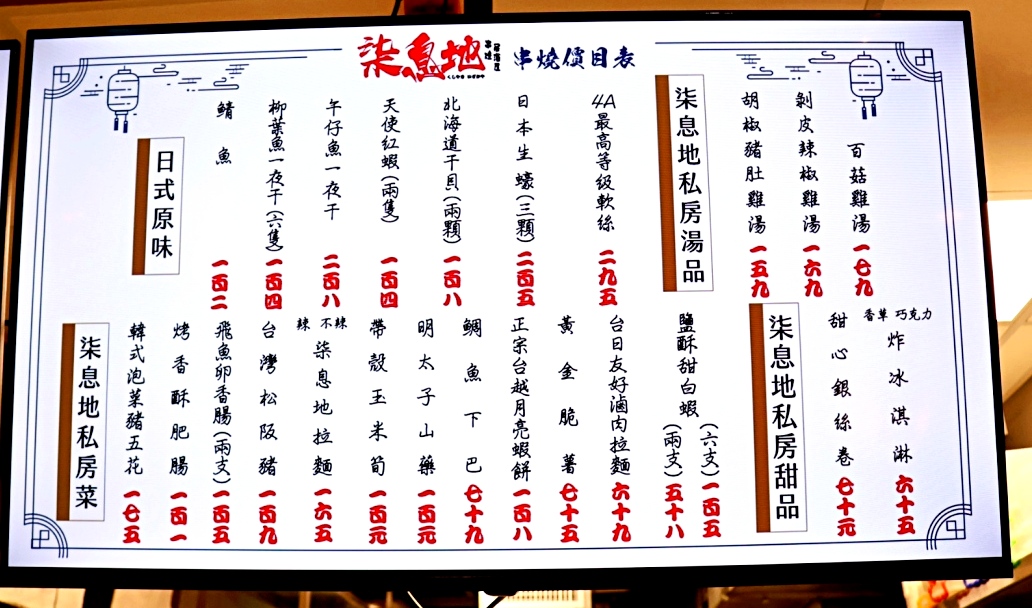 柒息地 串燒價目表
柒息地私房湯品
百菇雞湯 一七九
剝皮辣椒雞湯 一六九
胡椒豬肚雞湯 一五九
日式原味
4A最高等级軟絲 二九五
日本生蠔(三顆) 二百五
北海道干貝(兩顆) 一百八
天使紅蝦(兩隻) 一百四
午仔魚一夜干 二百八
柳葉魚一夜干(六隻) 一百四
鯖魚 一百二
柒息地私房甜品
香草 巧克力
炸冰淇淋 六十五
甜心銀絲卷 七十元
柒息地私房菜
鹽酥甜白蝦
(六支) 一百五
(兩支) 五十八
台日友好滷肉拉麵 六十九
黃金脆薯 七十五
正宗台越月亮蝦餅 一百八
鯛魚下巴 七十九
明太子山藥 一百元
帶殼玉米筍 一百元
辣 不辣
柒息地拉麵 一六五
台灣松阪豬 一百九
飛魚卵香腸(兩支) 一百五
烤香酥肥腸 一百一
韓式泡菜豬五花 一七五